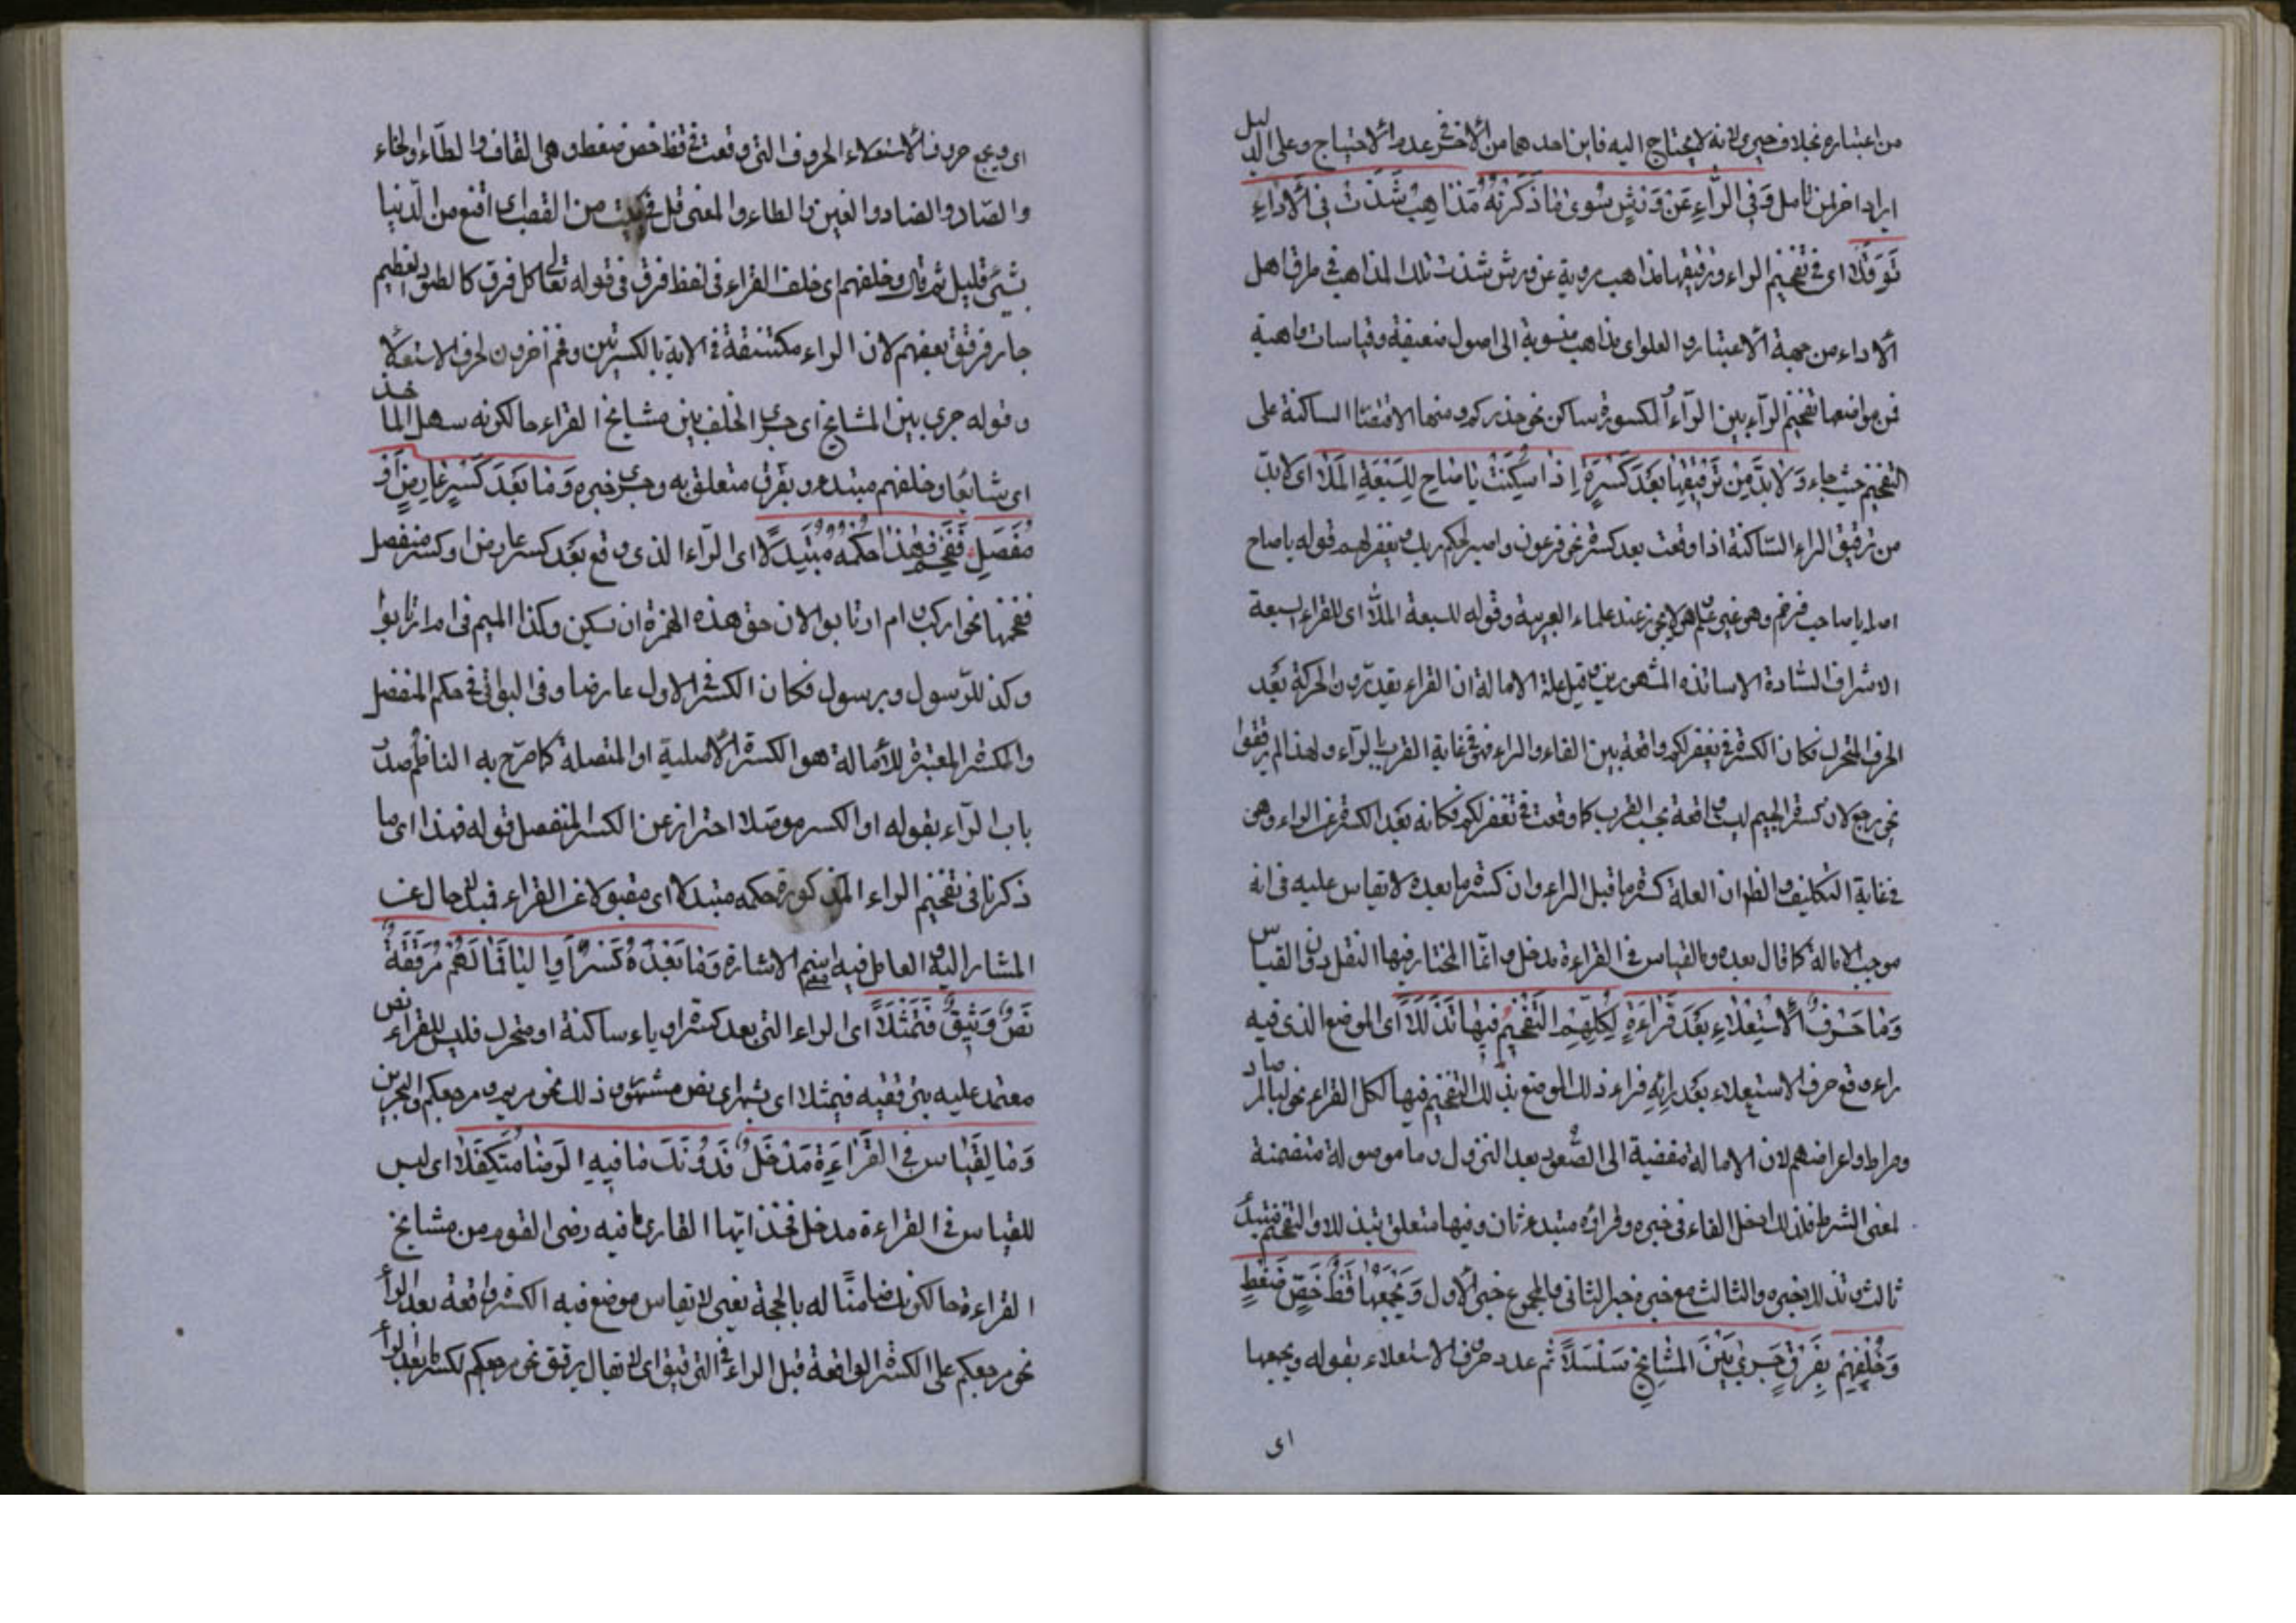 من اعتباره بخلاف حيري فانه لا يحتاج اليه فاين احدهما من الآخر عدم الاحتياج وعلى الدليل
ايراد اخر لمن تامل وَفِي الرَّاءِ عَنْ وَرْشٍ سِوَى مَا ذَكَرْتُهُ مَذَاهِبُ شَذَّتْ فِي الْأَدَاءِ
تَوَقُّلًا اى فى تفخيم الراء وترقيقها مذاهب مروية عن ورش شذت تلك المذاهب فى طرق اهل
الاداء من جهة الاعتبار والعلو اى مذاهب منسوبة الى اصول ضعيفة وقياسات واهية
فمن مواضعها تفخيم الراء بين الراء المكسورة ساكن نحو حذركم ومنها الاقتصا الساكنة على
التفخيم حيث جاء وَلَا بُدَّ مِنْ تَرْقِيقِهَا بَعْدَ كَسْرَةٍ إِذَا سَكَنَتْ يَا صَاحِ لِلسَّبْعَةِ الْمَلَا اى لا بدّ
من ترقيق الراء الساكنة اذا وقعت بعد كسرة نحو فرعون واصبر لحكم ربك ويغفر لهم قوله يا صاح
اصله يا صاحب فرخم وهو غير علم وهو لا يجوز عند علماء العربية وقوله للسبعة الملا اى للقراء السبعة
الاشراف السادة الاساتذه المشهورين قيل علة الامالة ان القراء يقدّرون الحركة بعد
الحرف المتحرك فكان الكسرة فى يغفر لكم واقعة بين الفاء والراء فهى فى غاية القرب بالراء ولهذا لم يرققوا
نحو يرجع لان كسرة الجيم ليست واقعة بجنب القرب كما وقعت فى تغفر لكم فكانه بعد الكسرة عن الراء وهى
فى غاية التكليف والظ ان العلة كسرة ما قبل الراء وان كسرة ما بعده لا يقاس عليه فى انه
موجب الامالة كما قال بعده وما لقياس فى القراءة مدخل وانما المختار فيها النقل دون القياس
وَمَا حَرْفُ الْاِسْتِعْلَاءِ بَعْدَ فَرَاءَهُ لِكُلِّهِمُ التَّفْخِيمُ فِيهَا تَذَلَّلَا اى الموضع الذى فيه
راء وقع حرف الاستعلاء بعد رائه فراء ذلك الموضع يذلك التفخيم فيها لكل القراء نحو لبالمرصاد
وصراط واعراضهم لان الامالة مفضية الى الصعود بعد النزول وما موصولة متضمنة
لمعنى الشرط فلذلك ادخل الفاء فى خبره وفراؤه مبتدء ثان وفيها متعلق بتذللا والتفخيم مبتدأ
ثالث وتذللا خبره والثالث مع خبره خبر الثانى والمجموع خبر الاول وَيَجْمَعُهَا قِظْ خُصَّ ضَغْطٍ
وَخُلْفُهُمْ بِفِرْقٍ جَرَى بَيْنَ الْمَشَايِخِ سَلْسَلًا ثم عدد حروف الاستعلاء بقوله ويجمعها
اى
اى ويجمع حروف الاستعلاء الحروف التى وقعت فى قظ خص ضغط وهى القاف والظاء والخاء
والصاد والضاد والغين والطاء والمعنى قل فى بيت من القصب اى اقنع من الدنيا
بشئ قليل ثم قال وخلفهم اى خلف القراء فى لفظ فرق فى قوله تعالى كل فرق كالطود العظيم
جار فرقق بعضهم لان الراء مكتنفة فى الاية بالكسرتين وفخم آخرون لحرف الاستعلا
وقوله جرى بين المشايخ اى جرى الخلف بين مشايخ القراء حالكونه سهل الماخذ
اى شايعا وخلفهم مبتدء وبفرق متعلق به وجرى خبره وَمَا بَعْدَ كَسْرٍ عَارِضٍ أَوْ
مُفَصَّلٍ فَفَخِّمْ فَهَذَا حُكْمُهُ مُتَبَذِّلًا اى الراء الذى وقع بعد كسر عارض او كسر منفصل
ففخمها نحو اركب وام ارتابوا لان حق هذه الهمزة ان تسكين وكذا الميم فى ام ارتابوا
وكذا للرّسول وبرسول فكان الكسر فى الاول عارضا وفى البواقى فى حكم المنفصل
والكسر المعتبرة للامالة هو الكسرة الاصلية او المتصلة كما صرح به الناظم صدر
باب الراء بقوله او الكسر موصلا احتراز عن الكسر المنفصل قوله فهذا اى ما
ذكرنا فى تفخيم الراء المذكورة حكمه متبذلا اى مقبولا عن القراء فهى حال عن
المشار اليه والعامل فيه اسم الاشارة وَمَا بَعْدَهُ كَسْرٌ أَوِ الْيَا فَمَا لَهُمْ بِتَرْقِيقِهِ
نَصٌّ وَثِيقٌ فَيَمْثُلَا اى الراء التى بعد كسرة او ياء ساكنة او متحرك فليس للقراء نص
معتمد عليه بترقيقه فيمثلا اى يشهر اى نص مشهور وذلك نحو مريم ومرجعكم والبحرين
وَمَا لِقِيَاسٍ فِي الْقِرَاءَةِ مَدْخَلٌ فَدُونَكَ مَا فِيهِ الرِّضَا مُتَكَفِّلَا اى ليس
للقياس فى القراءة مدخل فخذ ايها القارى ما فيه رضى القوم من مشايخ
القراءة حالكونك ضامنًا له بالحجة يعنى لا يقاس موضع فيه الكسرة واقعة بعد الرأ
نحو مرجعكم على الكسرة الواقعة قبل الراء فى الترقيق اى لا يقال يرقق نحو مرجعكم لكسر ما بعد الرأ